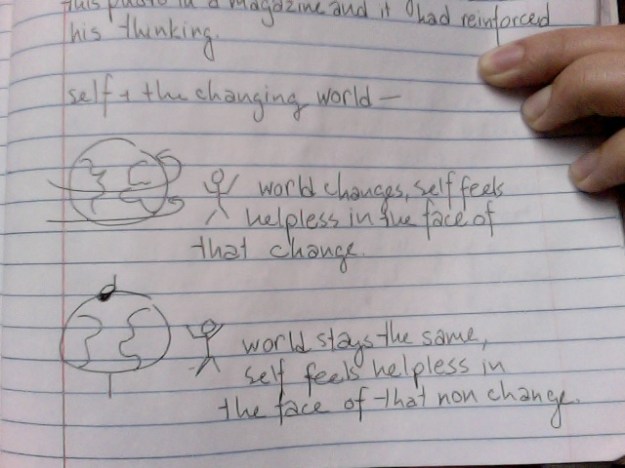 this photo in a magazine and it had reinforced
his thinking.
self + the changing world —
world changes, self feels
helpless in the face of
that change.
world stays the same,
self feels helpless in
the face of that non change.